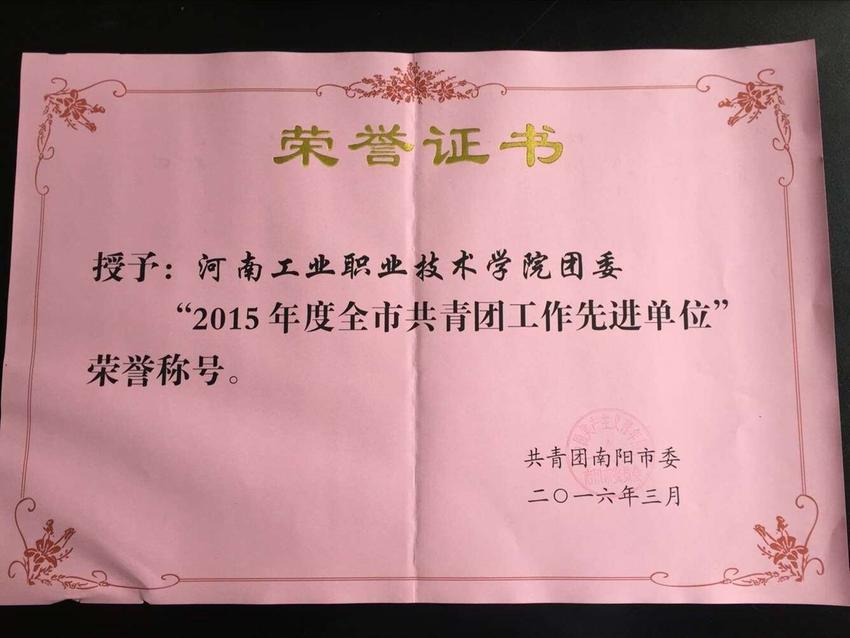 荣誉证书
授予：河南工业职业技术学院团委
“2015年度全市共青团工作先进单位”
荣誉称号。
共青团南阳市委
二〇一六年三月